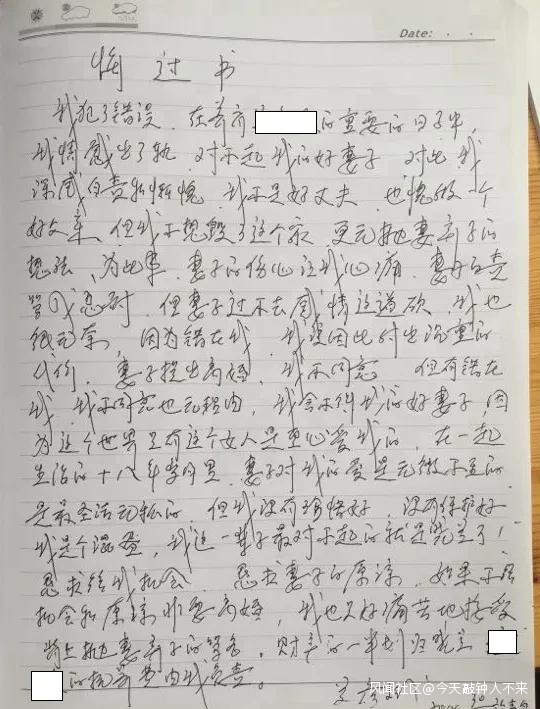 Date: . .
悔过书
我犯了错误，在养育的重要的日子中，
我情感出了轨，对不起我的好妻子，对此我
深感自责和惭愧，我不是好丈夫，也愧做一个
好父亲，但我不想毁了这个家，更无抛妻弃子的
想法，为此事，妻子的伤心让我心痛，妻子
但妻子过不去感情这道砍，我也
很无奈，因为错在我，我因此付出沉重的
代价，妻子提出离婚，我不同意，但有错在
我，我不同意也无理由，我舍不得我的好妻子，因
为这个世界只有这个女人是真心爱我的，在一起
生活的十八年岁月里，妻子对我的爱是无微不至的
是最圣洁无私的，但我没有珍惜好，没有保护好
我是个混蛋，我这一辈子最对不起的就是兰了！
恳求给我机会，恳求妻子的原谅，如果不给
机会和原谅非要离婚，我也只好痛苦地接受
背上抛妻弃子的骂名，财产的一半划归
的抚养费由我负责。
风闻社区@今天敲钟人不来